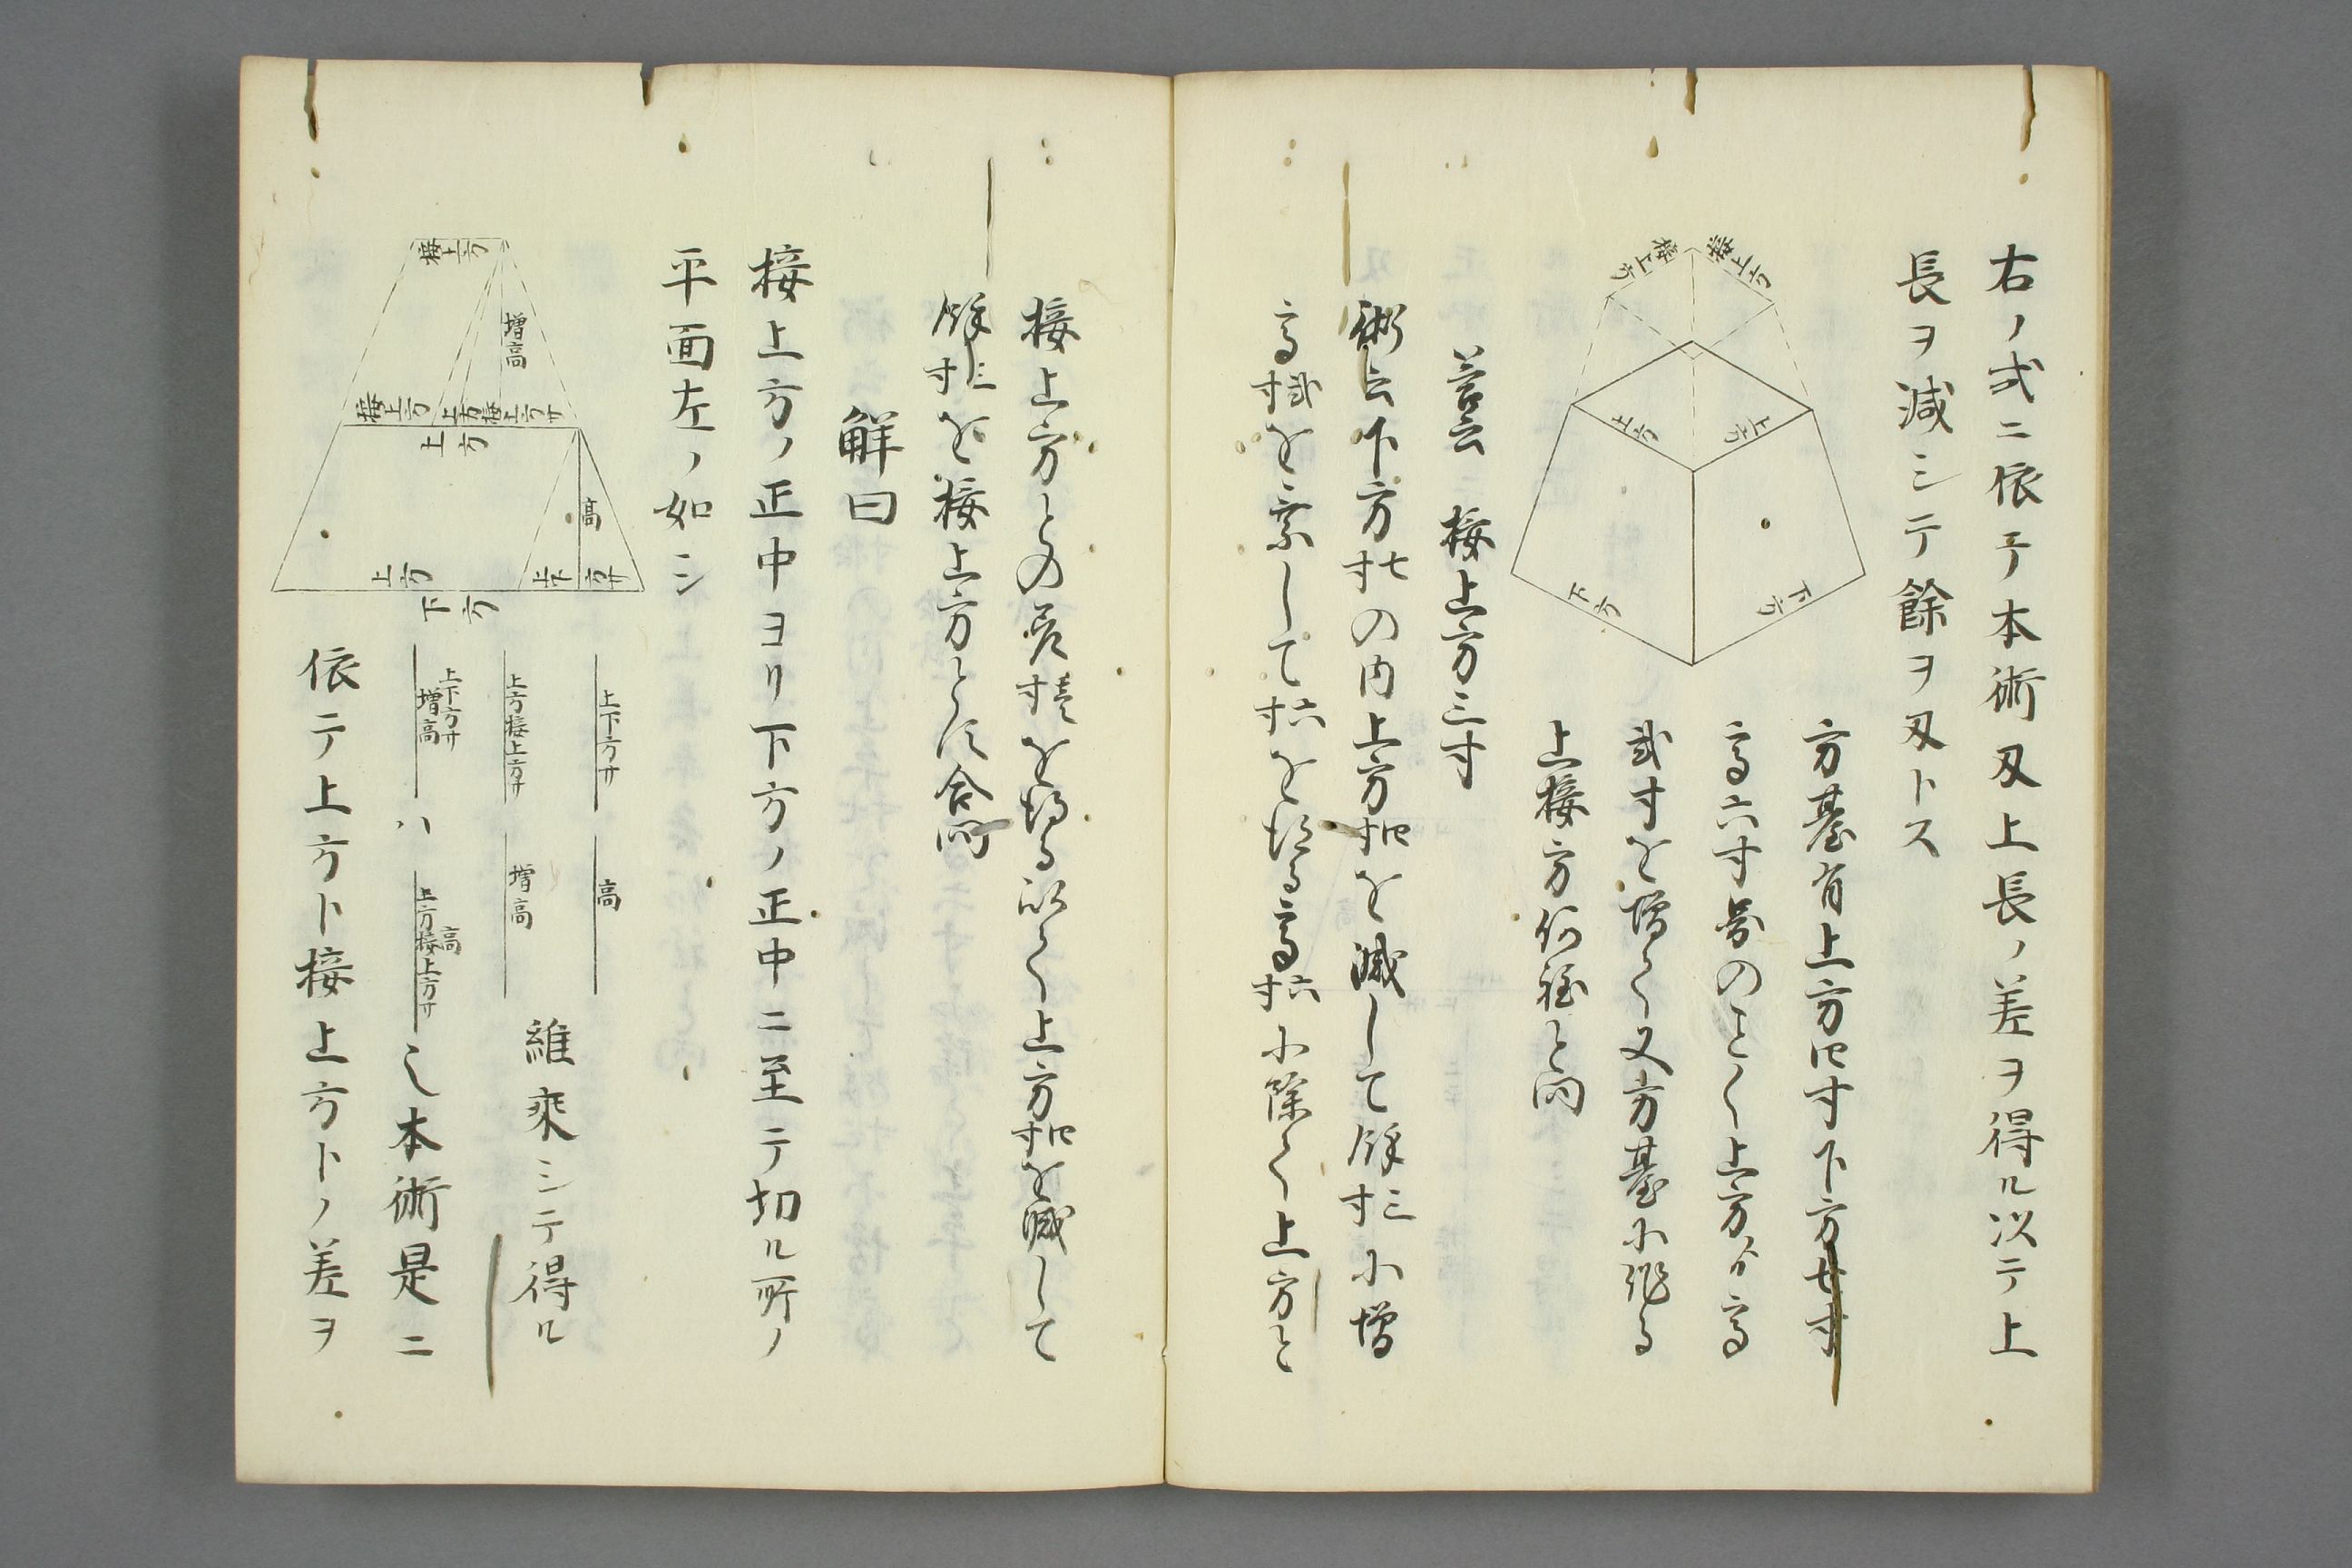 右ノ式ニ依テ本術及上長ノ差ヲ得ル以テ上
長ヲ減シテ餘ヲ及トス
接上方
接上方
上方
上方
下方
下方
方臺有上方四寸下方七寸
高六寸図のことく上方ゟ高
弐寸を増て又方臺に作る
上接方何程と問
答云 接上方三寸
術云下方七寸の内上方四寸を減して餘三寸に増
高弐寸を乗して六寸を得る高六寸に除て上方と
接上方との差壱寸を得る以て上方四寸を減して
餘三寸を接上方とす合問
解曰
接上方ノ正中ヨリ下方ノ正中ニ至テ切ル所ノ
平面左ノ如シ
接上方
増高
接上方
上方接上方サ
上方
高
上方
上下方サ
下方
上下方サ 高
上方接上方サ 増高
維乗シテ得ル
上下方サ増高ハ上方接上方サ高也本術是ニ
依テ上方ト接上方トノ差ヲ